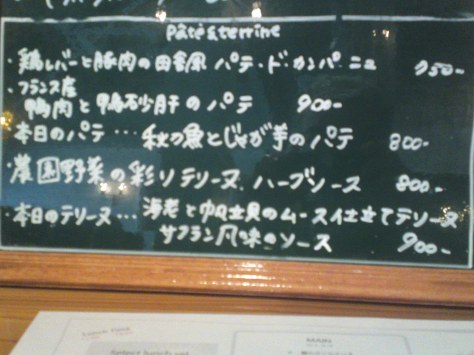 Pâté & terrine
・鶏レバーと豚肉の田舎風 パテ・ド・カンパーニュ 950-
・フランス産
鴨肉と鴨砂肝のパテ 900-
・本日のパテ … 秋の魚とじゃが芋のパテ 800-
・農園野菜の彩りテリーヌ ハーブソース 800-
・本日のテリーヌ … 海老と帆立貝のムース仕立てテリーヌ
サフラン風味のソース 900-
MAIN